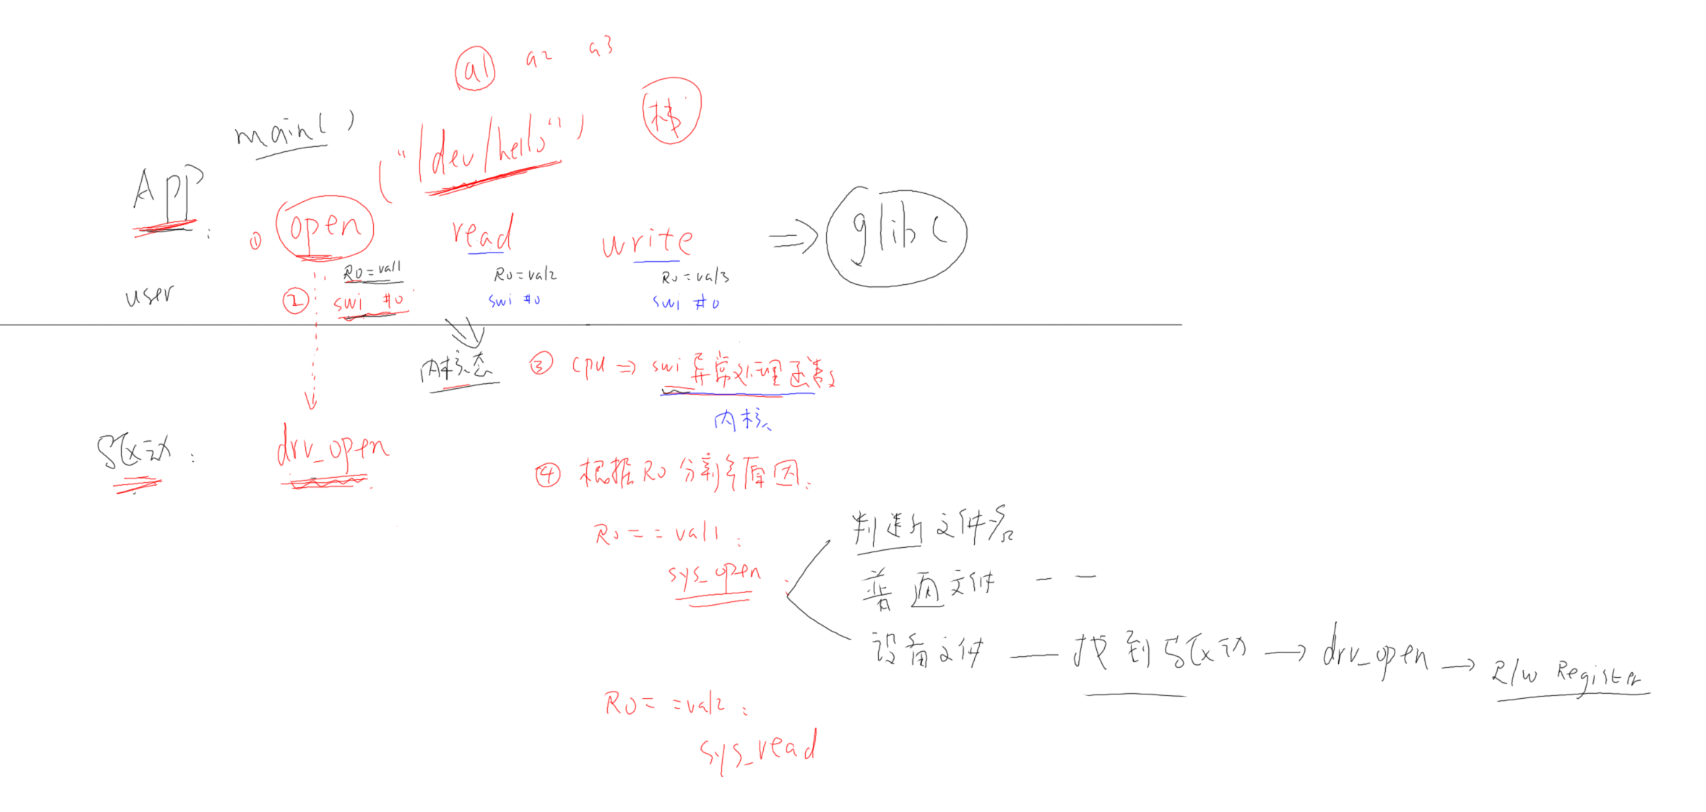 a1 a2 a3
main()
("/dev/hello")
栈
App:
① open read write ⇒ glibc
R0=val1 R0=val2 R0=val3
user ② swi #0 swi #0 swi #0
内核态 ③ cpu ⇒ swi异常处理函数
内核
驱动: drv_open
④ 根据R0分辨原因:
R0==val1:
sys_open:
判断文件名
普通文件 — —
设备文件 — 找到驱动 → drv_open → R/W Register
R0==val2:
sys_read